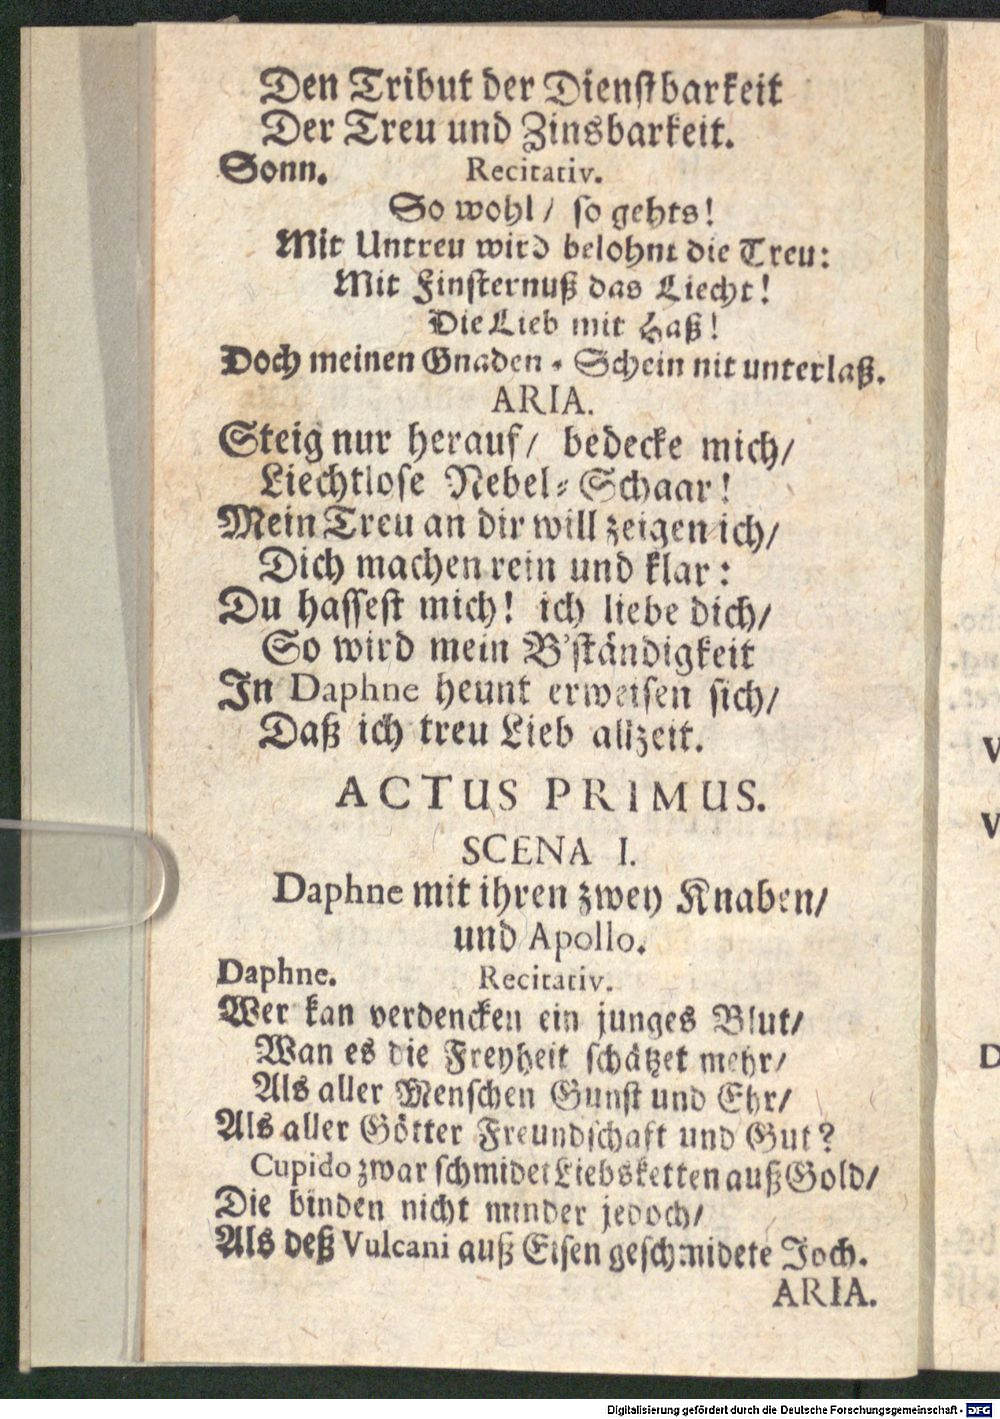 Den Tribut der Dienstbarkeit
Der Treu und Zinsbarkeit.
Sonn. Recitativ.
So wohl / so gehts!
Mit Untreu wird belohnt die Treu:
Mit Finsternuß das Liecht!
Die Lieb mit Haß!
Doch meinen Gnaden-Schein nit unterlaß.
ARIA.
Steig nur herauf / bedecke mich /
Liechtlose Nebel-Schaar!
Mein Treu an dir will zeigen ich /
Dich machen rein und klar:
Du hassest mich! ich liebe dich /
So wird mein B'ständigkeit
In Daphne heunt erweisen sich /
Daß ich treu Lieb allzeit.
ACTUS PRIMUS.
SCENA I.
Daphne mit ihren zwey Knaben /
und Apollo.
Daphne. Recitativ.
Wer kan verdencken ein junges Blut /
Wan es die Freyheit schätzet mehr /
Als aller Menschen Gunst und Ehr /
Als aller Götter Freundschaft und Gut?
Cupido zwar schmidet Liebsketten auß Gold /
Die binden nicht minder jedoch /
Als deß Vulcani auß Eisen geschmidete Joch.
ARIA.
Digitalisierung gefördert durch die Deutsche Forschungsgemeinschaft - DFG